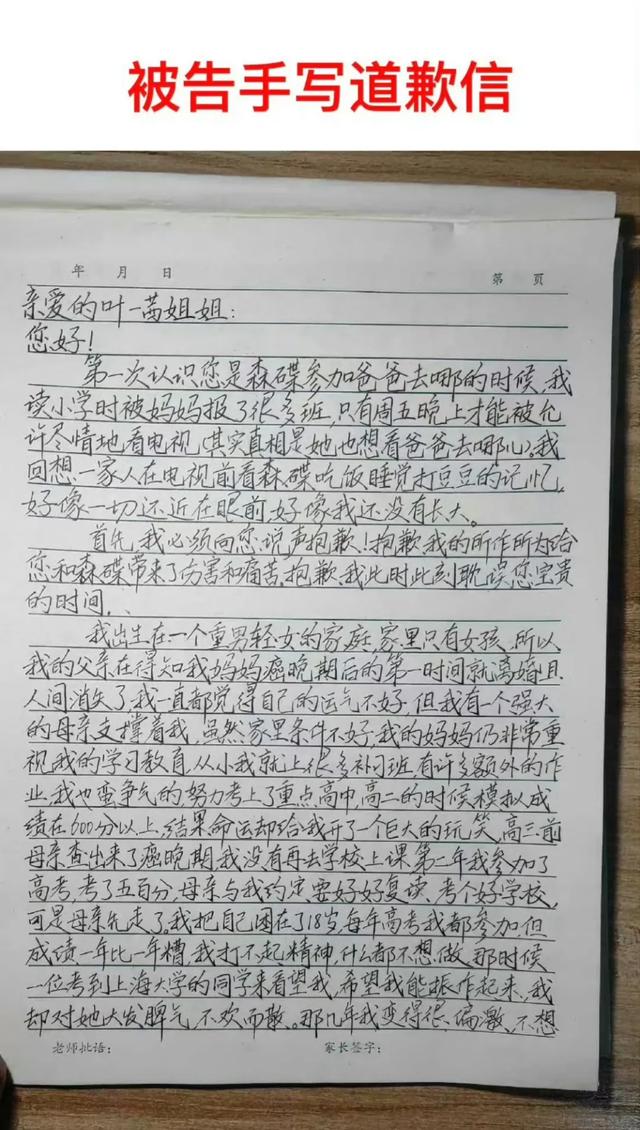 被告手写道歉信
年 月 日 第 页
亲爱的叶一茜姐姐：
您好！
第一次认识您是森碟参加爸爸去哪的时候，我
读小学时被妈妈报了很多班，只有周五晚上才能被允
许尽情地看电视（其实真相是她也想看爸爸去哪儿）。我
回想一家人在电视前看森碟吃饭睡觉打豆豆的记忆，
好像一切还近在眼前，好像我还没有长大。
首先，我必须向您说声抱歉！抱歉我的所作所为给
您和森碟带来了伤害和痛苦，抱歉我此时此刻耽误您宝贵
的时间．．
我出生在一个重男轻女的家庭，家里只有女孩，所以
我的父亲在得知我妈妈癌晚期后的第一时间就离婚且
人间消失了，我一直都觉得自己的运气不好，但我有一个强大
的母亲支撑着我，虽然家里条件不好，我的妈妈仍非常重
视我的学习教育，从小我就上很多补习班，有许多额外的作
业，我也蛮争气的，努力考上了重点高中，高二的时候模拟成
绩在600分以上，结果命运却给我开了一个巨大的玩笑，高三前
母亲查出来了癌晚期，我没有再去学校上课，第二年我参加了
高考，考了五百分，母亲与我约定要好好复读，考个好学校，
可是母亲先走了。我把自己困在了18岁，每年高考我都参加但
成绩一年比一年糟，我打不起精神，什么都不想做，那时候
一位考到上海大学的同学来看望我，希望我能振作起来，我
却对她大发脾气，不欢而散。那几年我变得很偏激，不想
老师批语： 家长签字：